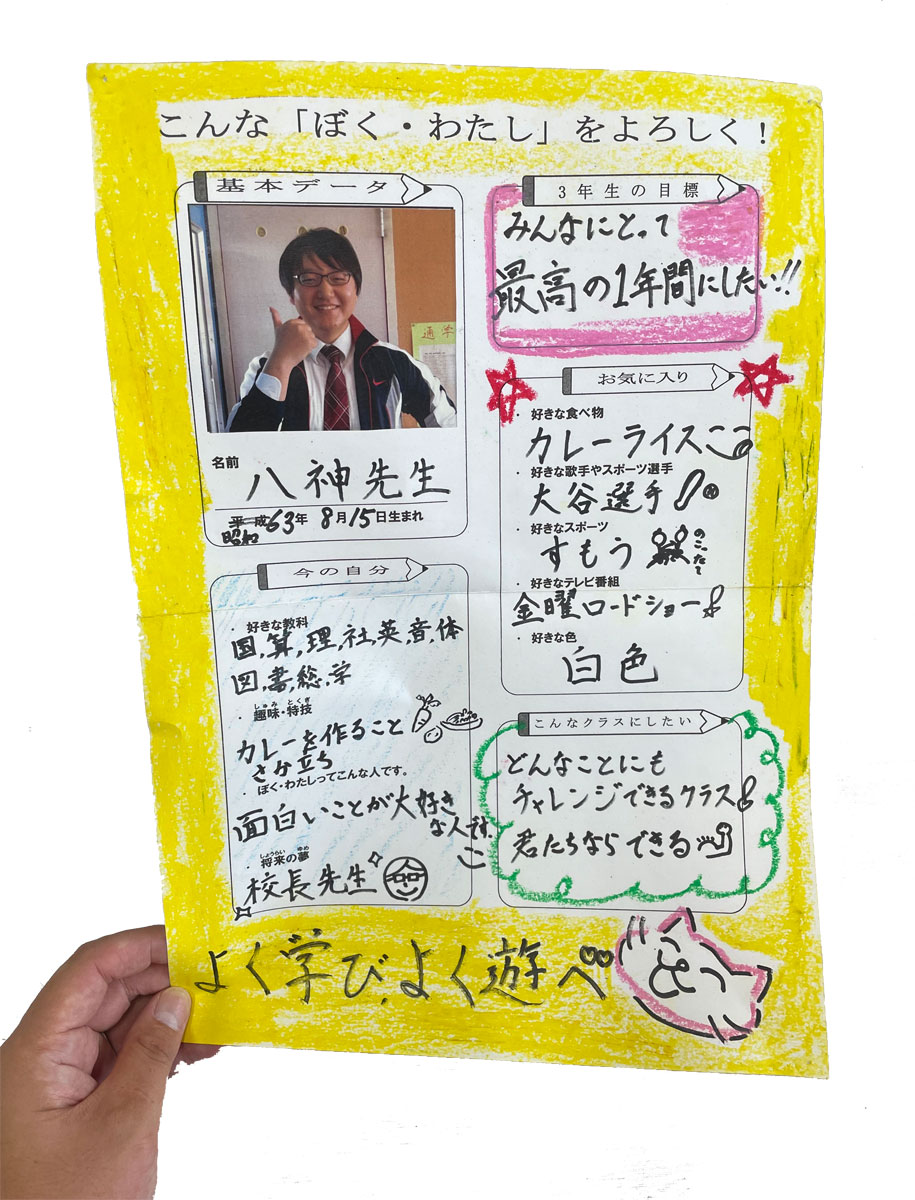 こんな「ぼく・わたし」をよろしく！
基本データ
通学
名前
八神先生
平成63年 8月15日生まれ
昭和
今の自分
・好きな教科
国,算,理,社,英,音,体
図,書,総,学
しゅみ とくぎ
・趣味・特技
カレーを作ること
さか立ち
・ぼく・わたしってこんな人です。
面白いことが大好き
な人です.
しょうらい ゆめ
・将来の夢
校長先生
3年生の目標
みんなにとって
最高の1年間にしたい!!
お気に入り
・好きな食べ物
カレーライス
・好きな歌手やスポーツ選手
大谷選手
・好きなスポーツ
すもう
のこった
・好きなテレビ番組
金曜ロードショー
・好きな色
白色
こんなクラスにしたい
どんなことにも
チャレンジできるクラス
君たちならできる
よく学び,よく遊べ